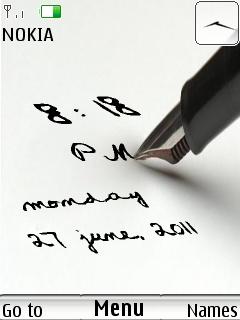 NOKIA
8:18
PM
monday
27 june, 2011
Go to Menu Names